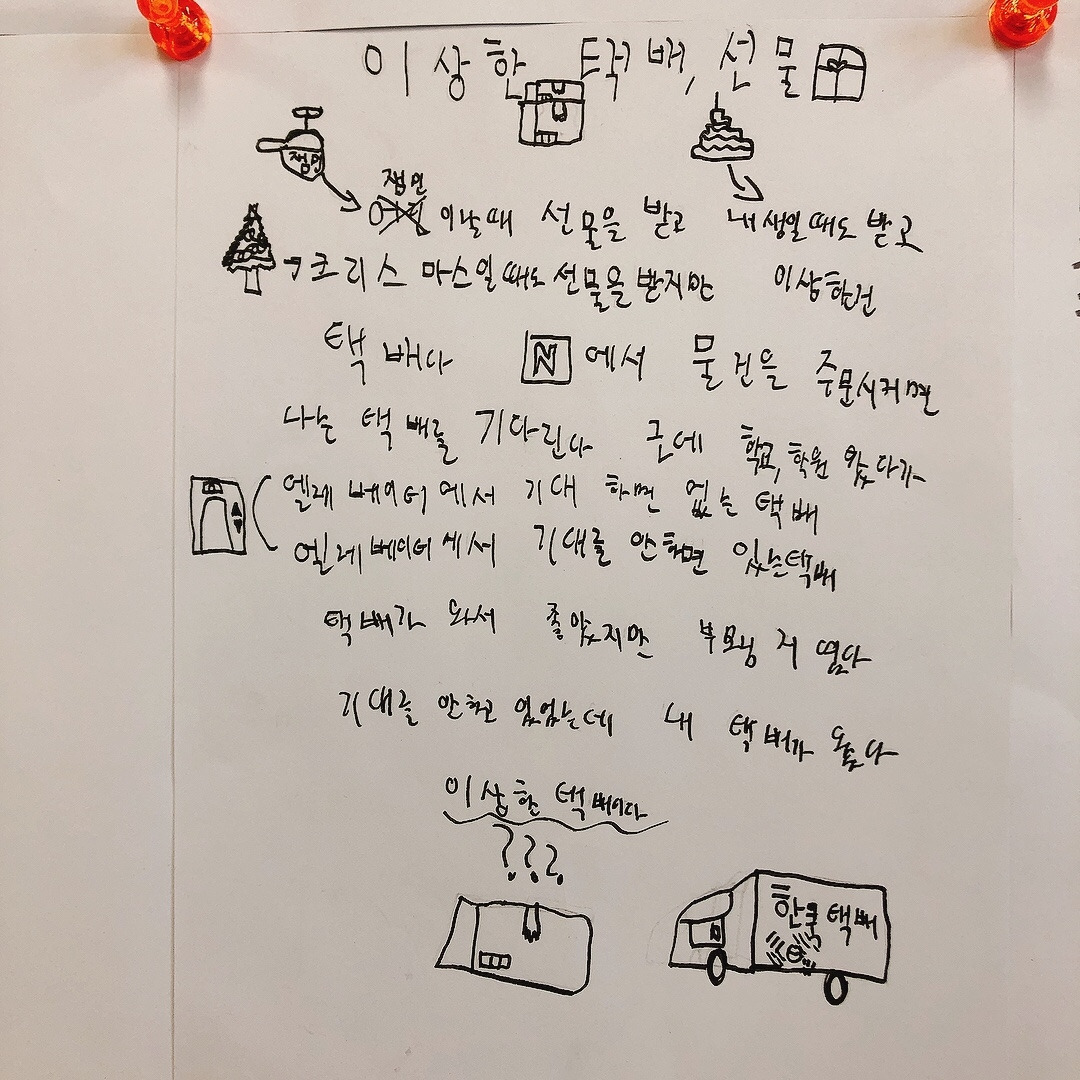 이상한 택배, 선물
점인
점인
이날때 선물을 받고 내 생일때도 받고
크리스마스일때도 선물을 받지만 이상한건
택배다 N에서 물건을 주문시키면
나는 택배를 기다린다 근데 학교, 학원 왔다가
엘레베이터에서 기대하면 없는 택배
엘레베이터에서 기대를 안하면 있는택배
택배가 와서 좋았지만 부모님 거 였다
기대를 안하고 있었는데 내 택배가 왔다
이상한 택배이다
???
한국택배